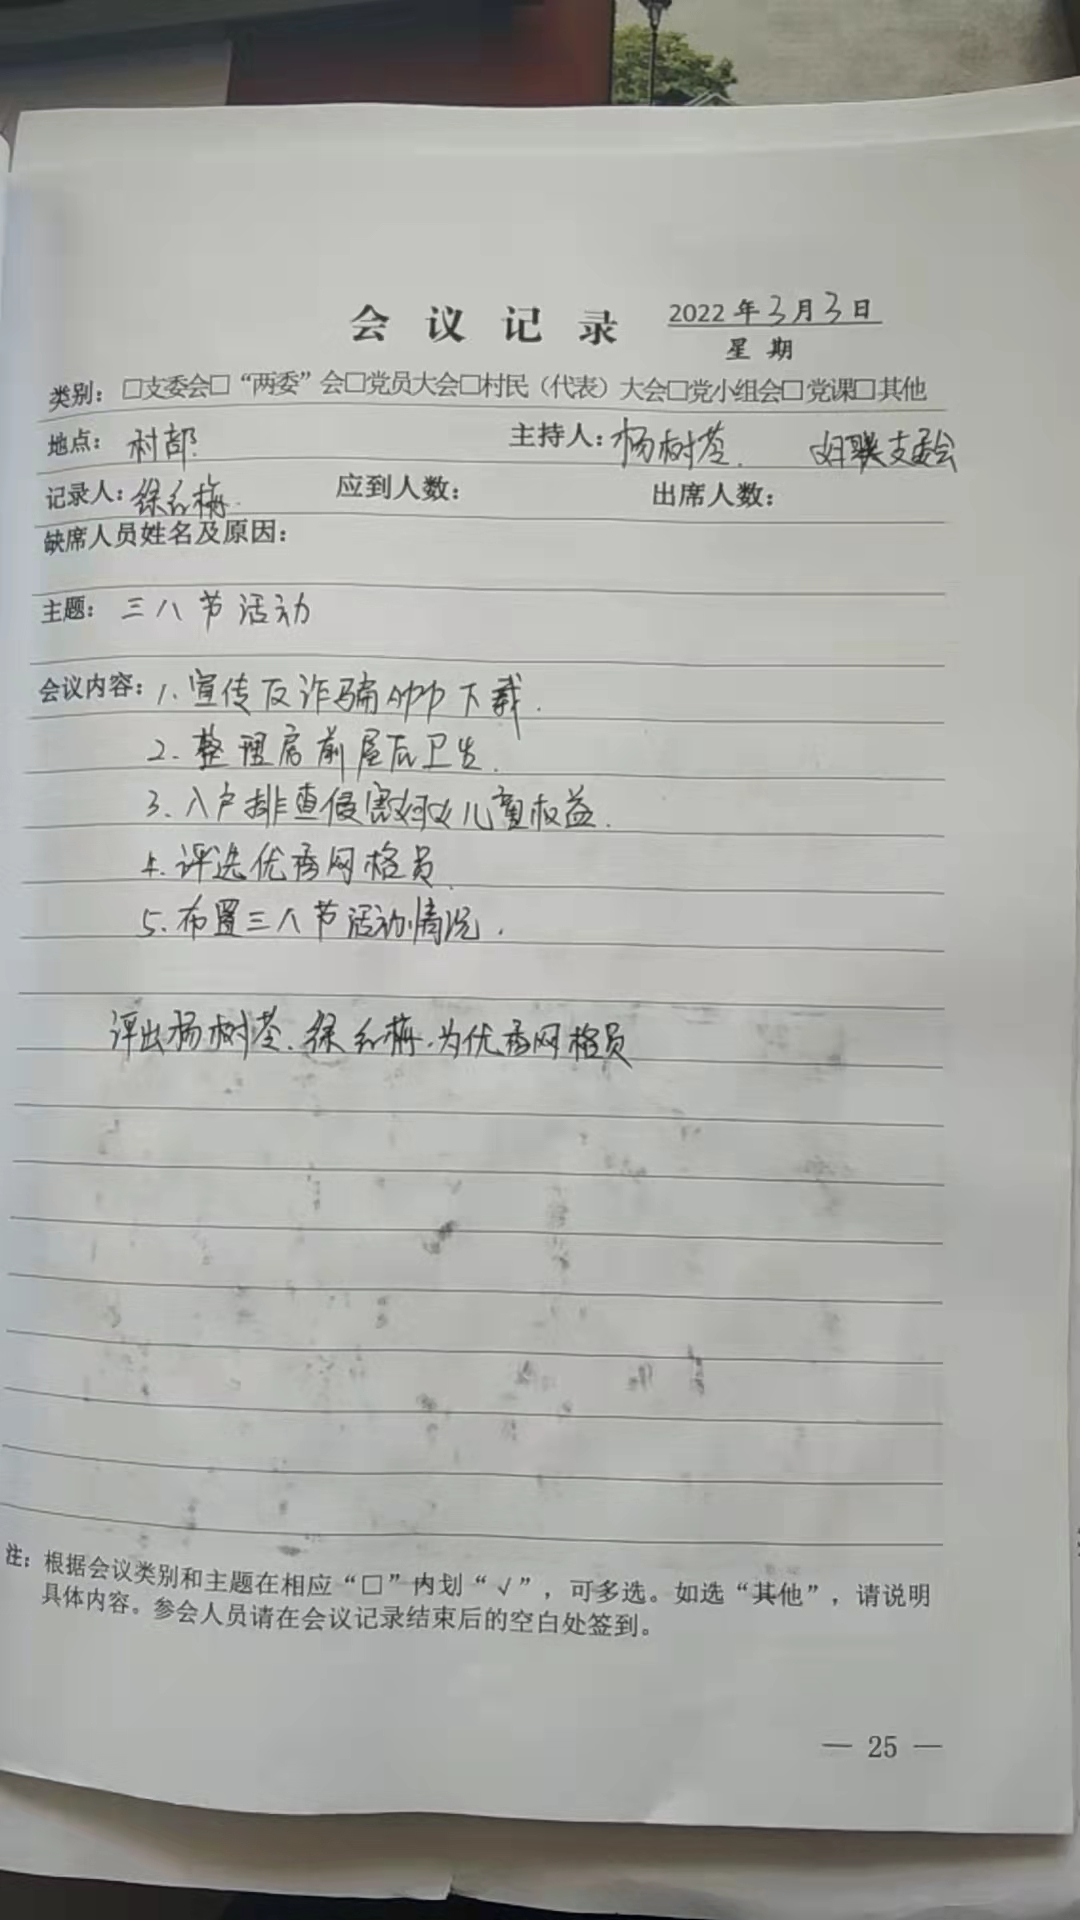 会议记录 2022年3月3日
星期
类别：□支委会□“两委”会□党员大会□村民（代表）大会□党小组会□党课□其他
地点：村部 主持人：杨树苓 妇联支委会
记录人：徐红梅 应到人数： 出席人数：
缺席人员姓名及原因：
主题：三八节活动
会议内容：1.宣传反诈骗APP下载.
2.整理房前屋后卫生.
3.入户排查侵害妇女儿童权益.
4.评选优秀网格员.
5.布置三八节活动情况.
评出杨树苓、徐红梅.为优秀网格员
注：根据会议类别和主题在相应“□”内划“√”，可多选。如选“其他”，请说明
具体内容。参会人员请在会议记录结束后的空白处签到。
— 25 —